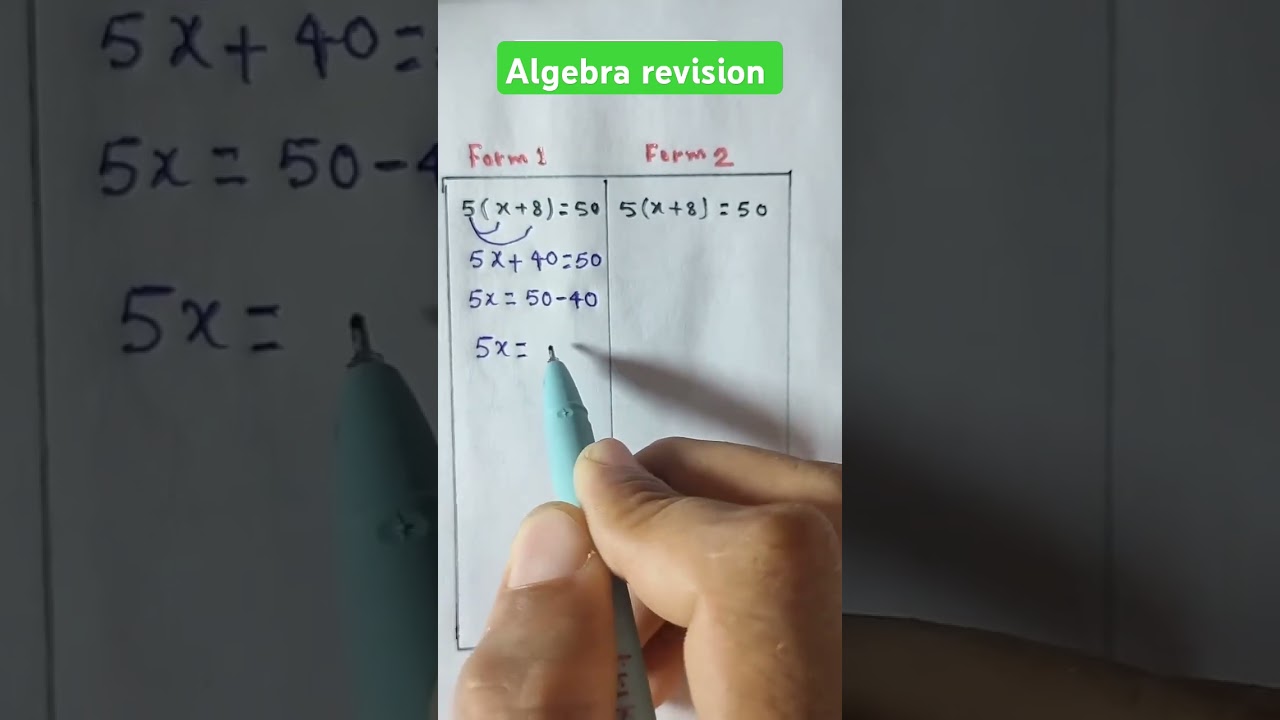 Algebra revision
Form 1
Form 2
5(x+8)=50
5(x+8)=50
5x+40=50
5x=50-40
5x=